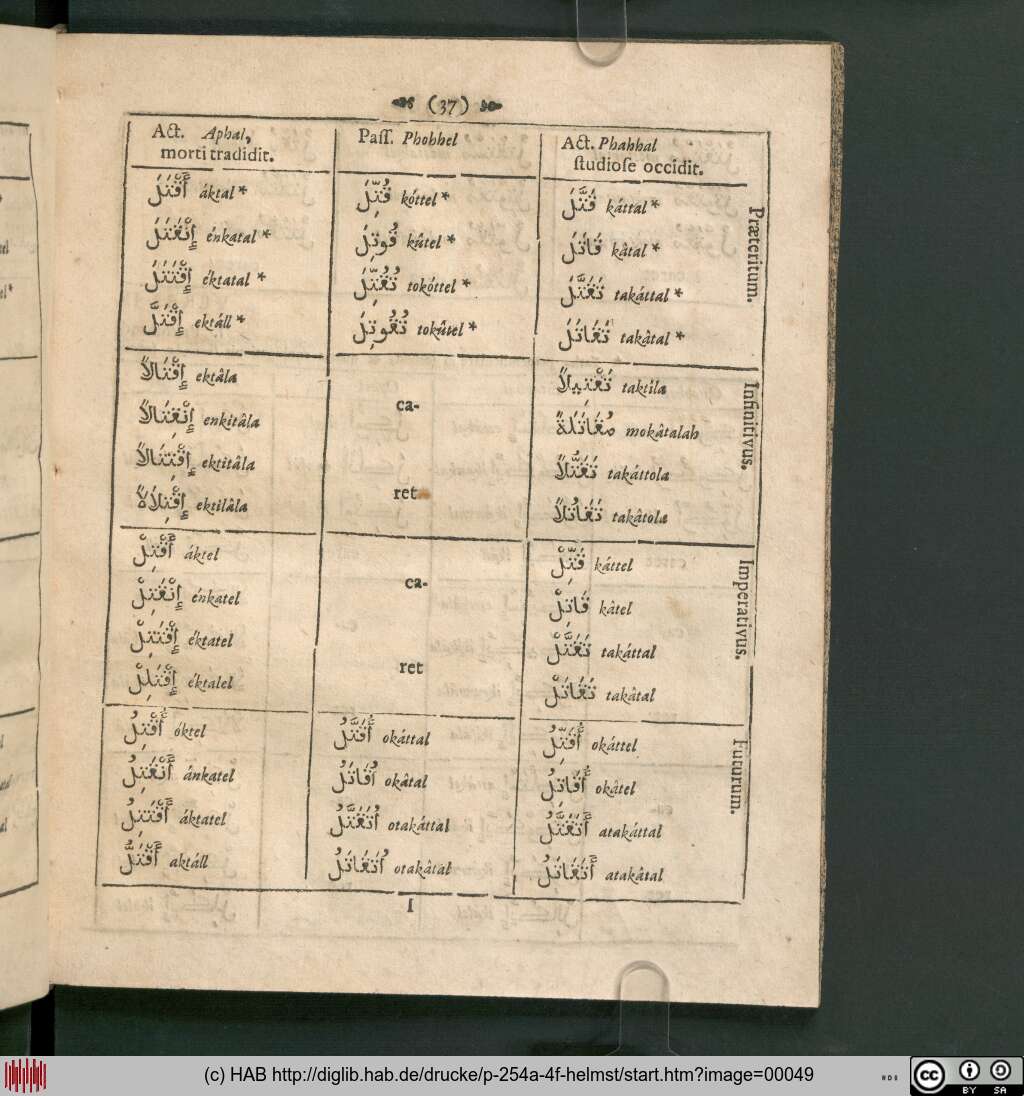 (37)
Act. Aphal,
morti tradidit.
Pass. Phohhel
Act. Phahhal
studiose occidit.
أَقْتَلَ áktal*
قُتِّلَ kóttel*
قَتَّلَ káttal*
إِنْقَتَلَ énkatal*
قُوتِلَ kûtel*
قَاتَلَ kâtal*
إِقْتَتَلَ éktatal*
تُقُتِّلَ tokóttel*
تَقَتَّلَ takáttal*
إِقْتَلَّ ektáll*
تُقُوتِلَ tokûtel*
تَقَاتَلَ takâtal*
Præteritum.
إِقْتَالاً ektâla
تَقْتِيلاً taktila
إِنْقِتَالاً enkitâla
ca-
مُقَاتَلَةً mokâtalah
إِقْتِتَالاً ektitâla
تَقَتُّلاً takáttola
إِقْتِلَالاً ektilâla
ret
تَقَاتُلاً takâtola
Infinitivus.
أَقْتِلْ áktel
قَتِّلْ káttel
إِنْقَتِلْ énkatel
ca-
قَاتِلْ kâtel
إِقْتَتِلْ éktatel
تَقَتَّلْ takáttal
إِقْتَلِلْ éktalel
ret
تَقَاتَلْ takâtal
Imperativus.
أُقْتِلُ óktel
أُقَتَّلُ okáttal
أُقَتِّلُ okáttel
أَنْقَتِلُ ánkatel
أُقَاتَلُ okâtal
أُقَاتِلُ okâtel
أَقْتَتِلُ áktatel
أُتَقَتَّلُ otakáttal
أَتَقَتَّلُ atakáttal
أَقْتَلُّ aktáll
أُتَقَاتَلُ otakâtal
أَتَقَاتَلُ atakâtal
Futurum.
I
(c) HAB http://diglib.hab.de/drucke/p-254a-4f-helmst/start.htm?image=00049
HAB
cc
BY SA